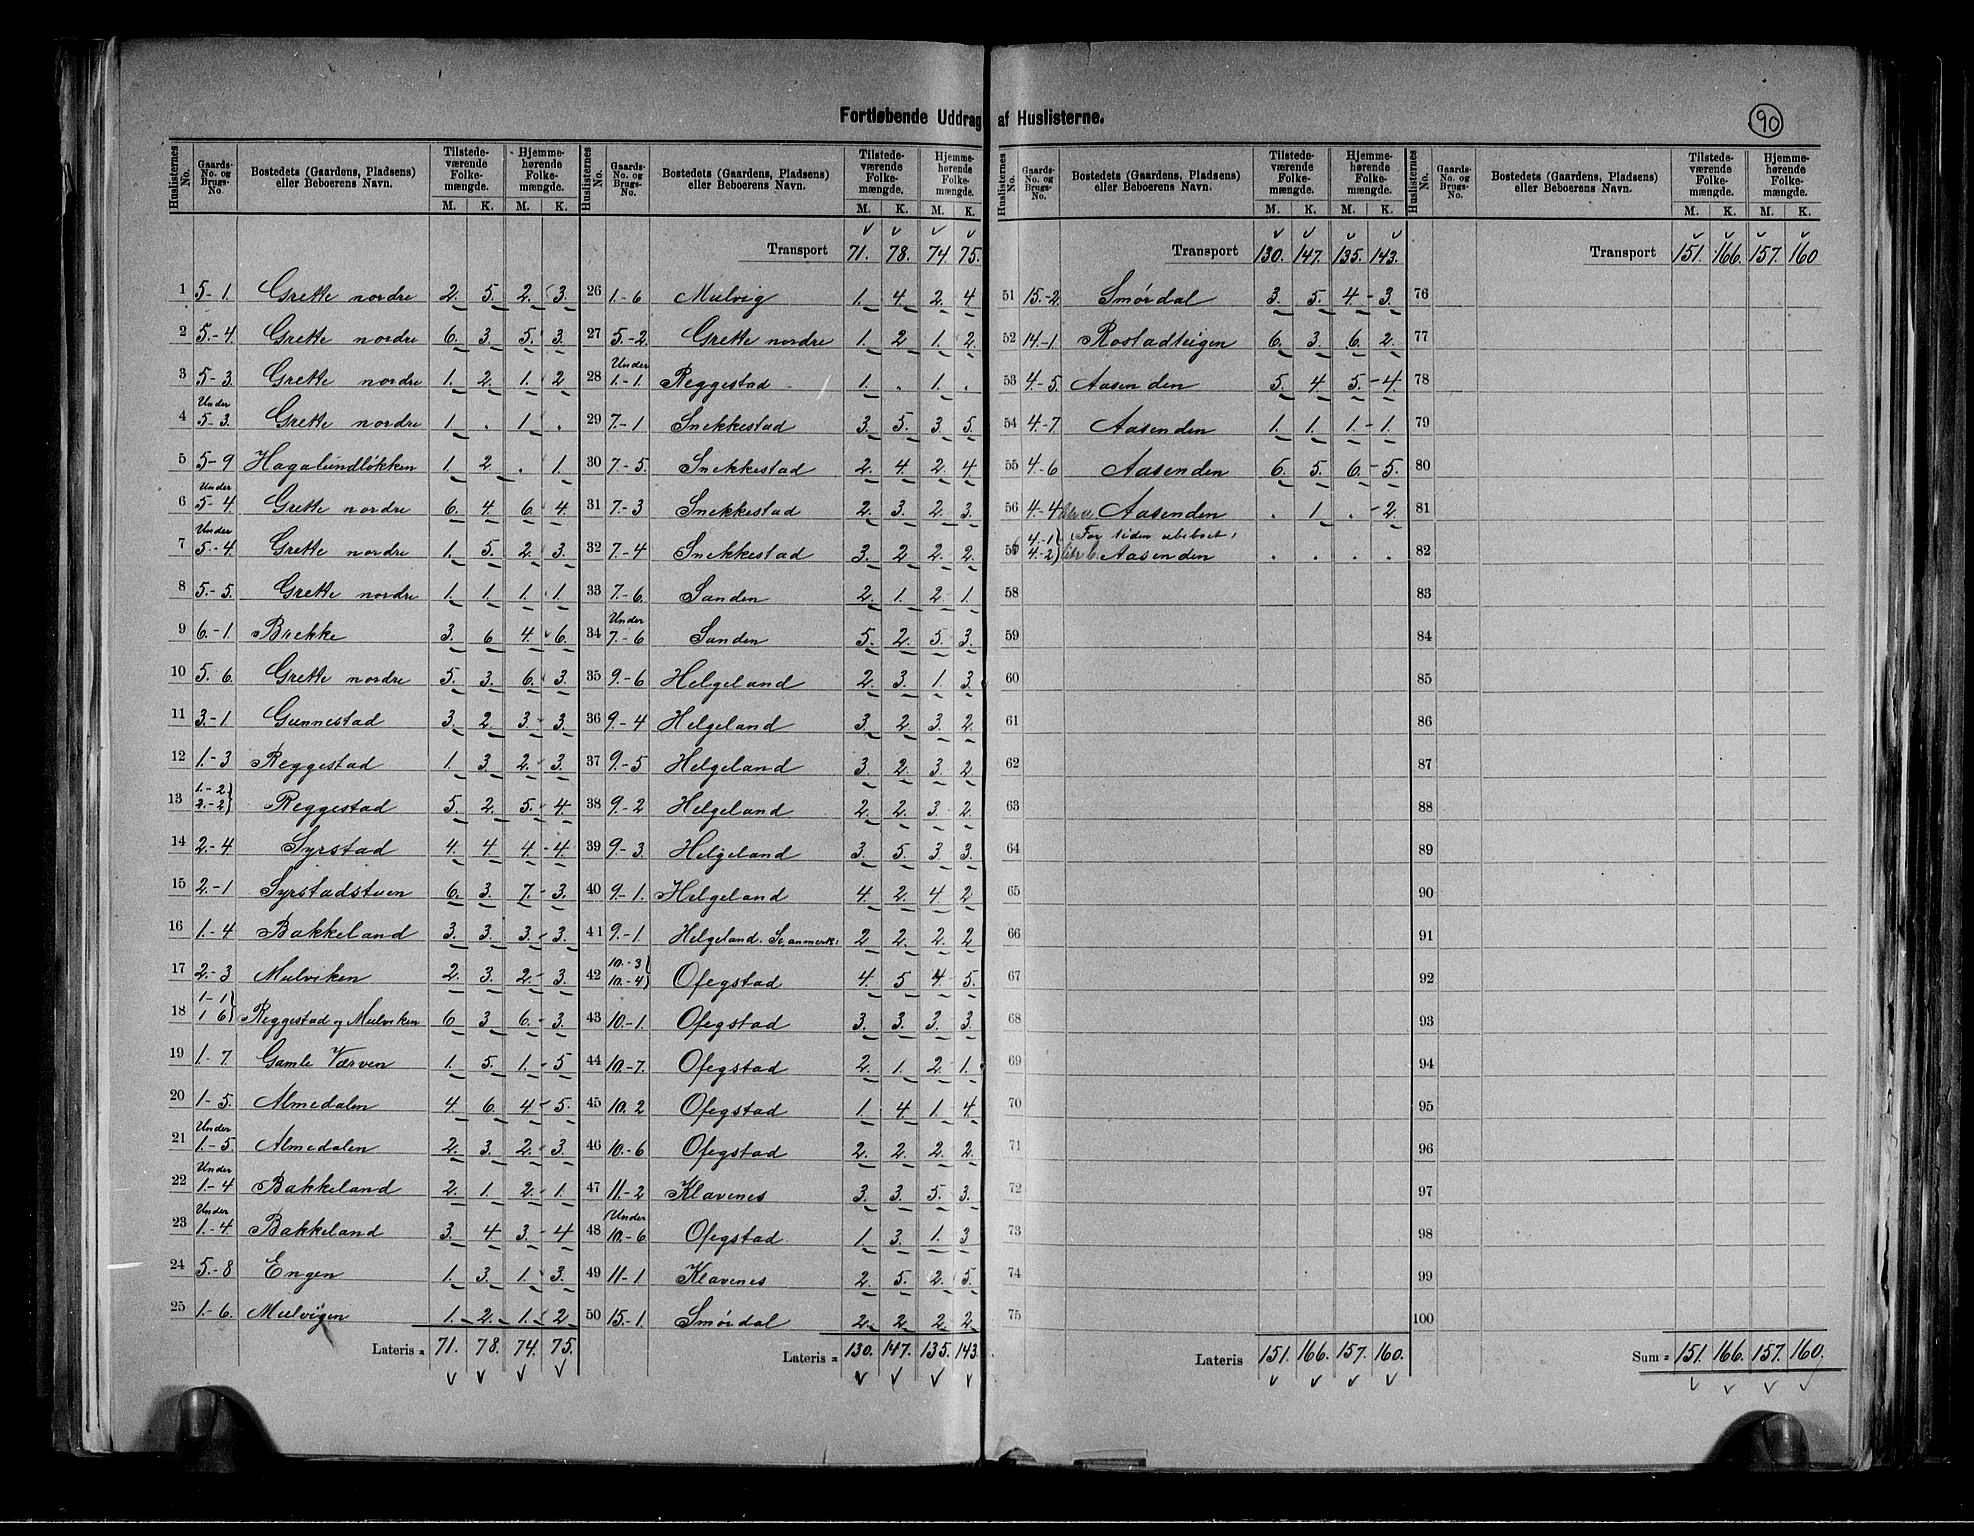 Fortløbende Uddrag af Huslisterne.
90
Huslisternes No. Gaards-No. og Brugs-No. Bostedets (Gaardens, Pladsens) eller Beboerens Navn. Tilstedeværende Folkemængde. M. K. Hjemmehørende Folkemængde. M. K.
1 5-1. Grette nordre 2. 5. 2. 3.
2 5-4. Grette nordre 6. 3. 5. 3.
3 5-3. Grette nordre 1. 2. 1. 2
4 Under 5-3. Grette nordre 1. . 1. .
5 5-9 Hagalundløkken 1. 2 . 1.
6 Under 5-4 Grette nordre 6. 4. 6. 4.
7 Under 5-4 Grette nordre 1. 5. 2. 3.
8 5.-5. Grette nordre 1. 1. 1. 1.
9 6.-1. Brekke 3. 6 4. 6.
10 5. 6. Grette nordre 5. 3. 6. 3.
11 3.-1 Gunnestad 3. 2. 3. 3.
12 1.-3 Reggestad 1. 3. 2. 3.
13 1.-2) 2.-2) Reggestad 5. 2. 5. 4.
14 2.-4. Syrstad 4. 4 4. 4.
15 2.-1 Syrstadstuen 6. 3. 7. 3.
16 1.-4 Bakkeland 3. 3. 3. 3.
17 2.-3 Mulviken 2. 3. 2. 3.
18 1-1) 1 6) Reggestad og Mulviken 6 3 6. 3.
19 1-7 Gamle Værven 1. 5. 1. 5
20 1-5. Almedalen 4. 6. 4. 5.
21 Under 1-5. Almedalen 2. 3. 2. 3.
22 Under 1-4 Bakkeland 2. 1. 2. 1.
23 Under 1-4 Bakkeland 3. 4 3. 4
24 5.-8 Engen 1. 3. 1. 3.
25 1.-6. Mulvigen 1. 2. 1. 2.
Lateris = 71. 78. 74. 75.
Huslisternes No. Gaards-No. og Brugs-No. Bostedets (Gaardens, Pladsens) eller Beboerens Navn. Tilstedeværende Folkemængde. M. K. Hjemmehørende Folkemængde. M. K.
Transport 71. 78. 74. 75.
26 1.-6 Mulvig 1. 4. 2. 4
27 5.-2. Grette nordre 1. 2 1. 2.
28 Under 1.-1. Reggestad 1. . 1. .
29 7.-1 Snekkestad 3. 5. 3. 5.
30 7.-5. Snekkestad 2. 4. 2. 4
31 7.-3 Snekkestad 2. 3. 2. 3.
32 7.-4 Snekkestad 3. 2 2. 2.
33 7.-6. Sanden 2. 1. 2. 1.
34 Under 7.-6 Sanden 5. 2. 5. 3.
35 9.-6 Helgeland 2. 3. 1. 3.
36 9.-4 Helgeland 3. 2 3. 2.
37 9.-5 Helgeland 3. 2. 3. 2
38 9.-2 Helgeland 2. 2. 3. 2.
39 9.-3 Helgeland 3. 5. 3 3.
40 9.-1. Helgeland 4. 2. 4. 2
41 9.-1 Helgeland. Se anmerk: 2 2. 2. 2
42 10.-3) 10.-4) Ofegstad 4. 5 4 5.
43 10.-1. Ofegstad 3. 3. 3. 3.
44 10.-7. Ofegstad 2. 1. 2. 1.
45 10. 2 Ofegstad 1. 4. 1. 4.
46 10.-6 Ofegstad 2. 2. 2. 2.
47 11.-2 Klavenes 3. 3. 5. 3.
48 Under 10.-6 Ofegstad 1. 3. 1. 3
49 11.-1 Klavenes 2. 5. 2. 5.
50 15.-1. Smørdal 2. 2. 2. 2
Lateris = 130. 147. 135. 143
Huslisternes No. Gaards-No. og Brugs-No. Bostedets (Gaardens, Pladsens) eller Beboerens Navn. Tilstedeværende Folkemængde. M. K. Hjemmehørende Folkemængde. M. K.
Transport 130. 147. 135. 143.
51 15.-2. Smørdal 3. 5. 4 3.
52 14.-1 Rostadteigen 6. 3. 6. 2.
53 4.-5. Aasenden 5. 4 5. 4.
54 4.-7 Aasenden 1. 1. 1. 1.
55 4.-6 Aasenden 6. 5. 6. 5.
56 4.-4 Aasenden . 1. . 2.
57 4.-1) 4.-2) (For tiden ubeboet) litr b. Aasenden . . . .
58
59
60
61
62
63
64
65
66
67
68
69
70
71
72
73
74
75
Lateris 151. 166. 157. 160.
Huslisternes No. Gaards-No. og Brugs-No. Bostedets (Gaardens, Pladsens) eller Beboerens Navn. Tilstedeværende Folkemængde. M. K. Hjemmehørende Folkemængde. M. K.
Transport 151. 166. 157. 160
76
77
78
79
80
81
82
83
84
85
86
87
88
89
90
91
92
93
94
95
96
97
98
99
100
Sum = 151. 166. 157. 160.